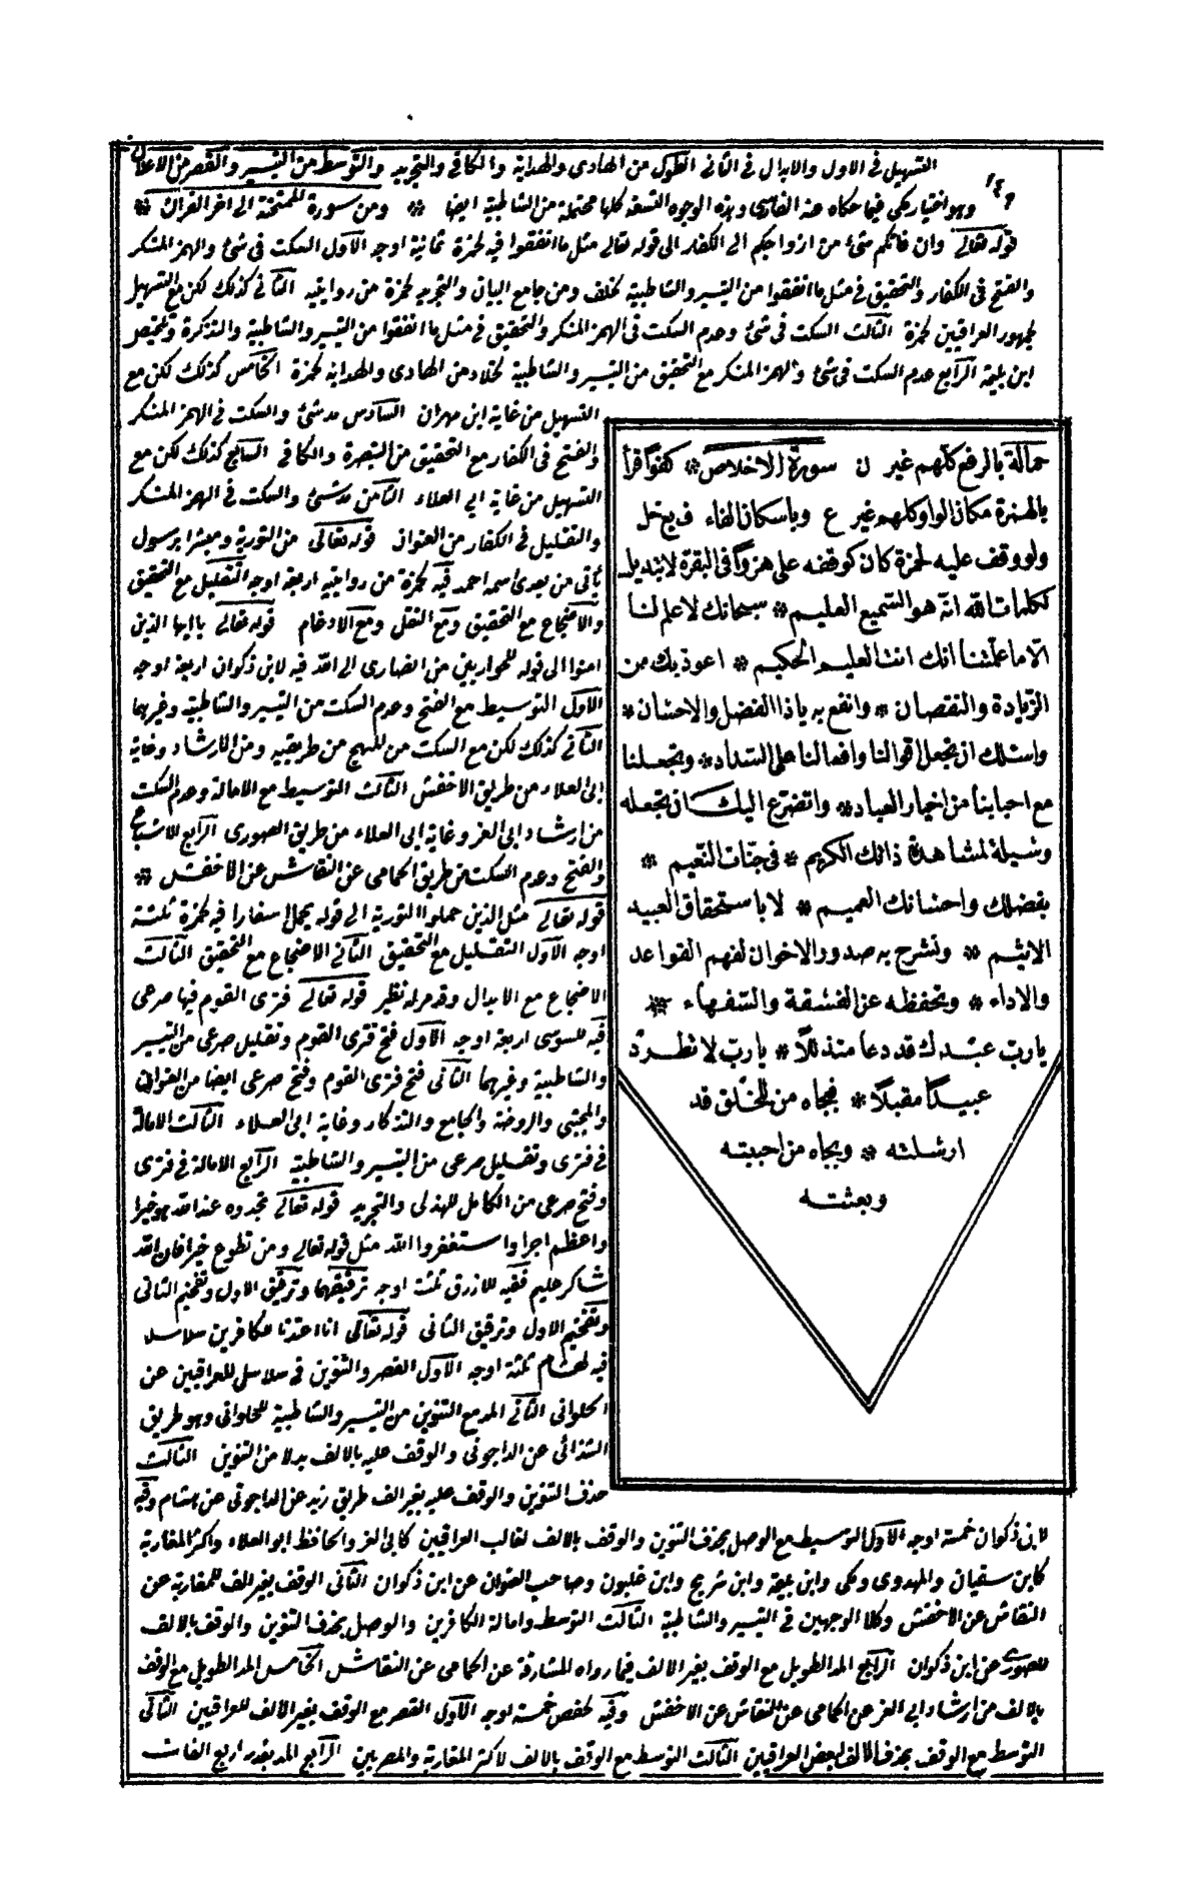 التسهيل فى الاول والابدال فى الثانى الطول من الهادى والهداية والكافى والتجريد والتوسط من التيسير والقصر من الاعلان
١٤٩
وهو اختيار مكى فيما حكاه عنه الفارسى وهذه الوجوه التسعة كلها محتملة من الشاطبية ايضا * ومن سورة الممتحنة الى اخر القرآن *
قوله تعالى وان فاتكم شئ من ازواجكم الى الكفار الى قوله تعالى مثل ما انفقوا فيه لحمزة ثمانية اوجه الاول السكت فى شئ والهمز المنكر
والفتح فى الكفار والتحقيق فى مثل ما انفقوا من التيسير والشاطبية لخلف ومن جامع البيان والتجريد لحمزة من روايتيه الثانى كذلك لكن مع التسهيل
لجمهور العراقيين لحمزة الثالث السكت فى شئ وعدم السكت فى الهمز المنكر والتحقيق فى مثل ما انفقوا من التيسير والشاطبية والتذكرة وتلخيص
ابن بليمة الرابع عدم السكت فى شئ والهمز المنكر مع التحقيق من التيسير والشاطبية لخلاد من الهادى والهداية لحمزة الخامس كذلك لكن مع
التسهيل من غاية ابن مهران السادس مد شئ والسكت فى الهمز المنكر
والفتح فى الكفار مع التحقيق من التبصرة والكافى السابع كذلك لكن مع
التسهيل من غاية ابى العلاء الثامن مد شئ والسكت فى الهمز المنكر
والتقليل فى الكفار من العنوان قوله تعالى من التورية ومبشرا برسول
يأتى من بعدى اسمه احمد فيه لحمزة من روايتيه اربعة اوجه التقليل مع التحقيق
والاضجاع مع التحقيق ومع النقل ومع الادغام قوله تعالى يا ايها الذين
امنوا الى قوله للحواريين من انصارى الى الله فيه لابن ذكوان اربعة اوجه
الاول التوسيط مع الفتح وعدم السكت من التيسير والشاطبية وغيرهما
الثانى كذلك لكن مع السكت من المبهج من طريقيه ومن الارشاد وغاية
ابى العلاء من طريق الاخفش الثالث التوسيط مع الامالة وعدم السكت
من ارشاد ابى العز وغاية ابى العلاء من طريق الصورى الرابع الاشباع
والفتح وعدم السكت من طريق الحمامى عن النقاش عن الاخفش *
قوله تعالى مثل الذين حملوا التورية الى قوله يحمل اسفارا فيه لحمزة ثلثة
اوجه الاول التقليل مع التحقيق الثانى الاضجاع مع التحقيق الثالث
الاضجاع مع الابدال وقد مر له نظير قوله تعالى فترى القوم فيها صرعى
فيه للسوسى اربعة اوجه الاول فتح فترى القوم وتقليل صرعى من التيسير
والشاطبية وغيرهما الثانى فتح فترى القوم وفتح صرعى ايضا من العنوان
والمجتبى والروضة والجامع والتذكار وغاية ابى العلاء الثالث الامالة
فى فترى وتقليل صرعى من التيسير والشاطبية الرابع الامالة فى فترى
وفتح صرعى من الكامل للهذلى والتجريد قوله تعالى تجدوه عند الله هو خيرا
واعظم اجرا واستغفروا الله مثل قوله تعالى ومن تطوع خيرا فان الله
شاكر عليم ففيه للازرق ثلثة اوجه ترقيقهما وترقيق الاول وتفخيم الثانى
وتفخيم الاول وترقيق الثانى قوله تعالى انا اعتدنا للكافرين سلاسل
فيه لهشام ثلثة اوجه الاول القصر والتنوين فى سلاسل للعراقيين عن
الحلوانى الثانى المد مع التنوين من التيسير والشاطبية للحلوانى وهو طريق
الشذائى عن الداجونى والوقف عليه بالالف بدلا من التنوين الثالث
حذف التنوين والوقف عليه بغير الف طريق زيد عن الداجونى عن هشام وفيه
لابن ذكوان خمسة اوجه الاول التوسيط مع الوصل بحذف التنوين والوقف بالالف لغالب العراقيين كابى العز والحافظ ابو العلاء واكثر المغاربة
كابن سفيان والمهدوى ومكى وابن بليمة وابن شريح وابن غلبون وصاحب العنوان عن ابن ذكوان الثانى الوقف بغير الف للمغاربة عن
النقاش عن الاخفش وكلا الوجهين فى التيسير والشاطبية الثالث التوسط وامالة الكافرين والوصل بحذف التنوين والوقف بالالف
للصورى عن ابن ذكوان الرابع المد الطويل مع الوقف بغير الالف فيما رواه المشارقة عن الحمامى عن النقاش الخامس المد الطويل مع الوقف
بالالف من ارشاد ابى العز عن الحمامى عن النقاش عن الاخفش وفيه لحفص خمسة اوجه الاول القصر مع الوقف بغير الالف للعراقيين الثانى
التوسط مع الوقف بحذف الالف لبعض العراقيين الثالث التوسط مع الوقف بالالف لاكثر المغاربة والمصريين الرابع المد بقدر اربع الفات
حمالة بالرفع كلهم غير ن سورة الاخلاص * كفوًا قرأ
بالهمزة مكان الواو كلهم غير ع وباسكان الفاء ف يع خل
ولو وقف عليه لحمزة كان كوقفه على هزوًا فى البقرة لا تبديل
لكلمات الله انه هو السميع العليم * سبحانك لا علم لنا
الا ما علمتنا انك انت العليم الحكيم * اعوذ بك من
الزيادة والنقصان * وانفع به يا ذا الفضل والاحسان *
واسئلك ان تجعل اقوالنا وافعالنا على السداد * وتجعلنا
مع احبابنا من اخيار العباد * واتضرع اليك ان تجعله
وسيلة لمشاهدة ذاتك الكريم * فى جنات النعيم *
بفضلك واحسانك العميم * لا باستحقاق العبيد
الاثيم * وتشرح به صدور الاخوان لفهم القواعد
والاداء * وتحفظه عن الفسقة والسفهاء *
يا رب عبدك قد دعا متذللًا * يا رب لا تطرد
عبيدًا مقبلًا * فبجاه من للخلق قد
ارسلته * وبجاه من احببته
وبعثته